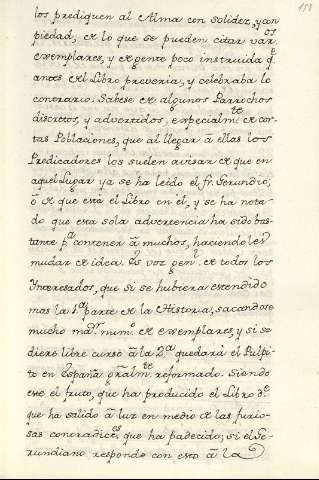 158
los prediquen al Alma con solidez, y con
piedad, de lo que se pueden citar varios
exemplares, y de gente poco instruida qe
antes del Libro preveria, y celebraba lo
contrario. Sabese de algunos Parrochos
discretos, y advertidos, especialmte de cor-
tas Poblaciones, que al llegar à ellas los
Predicadores los suelen avisar de que en
aquel Lugar ya se ha leido el fr. Gerundio,
ò de que està el Libro en el, y se ha nota-
do que esta sola advertencia ha sido bas-
tante pa contener à muchos, haciendoles
mudar de idea. Es voz genl de todos los
Ynteresados, que si se hubiera extendido
mas la 1.a parte de la Historia, sacandose
mucho mar numo de exemplares, y si se
diere libre curso à la 2.a quedarà el Pulpi-
to en España gralmte reformado. Siendo
este el fruto, que ha producido el Libro
que ha salido à luz en medio de las furio-
sas contradices que ha padecido; si el Ge-
rundiano respondo con esto à la